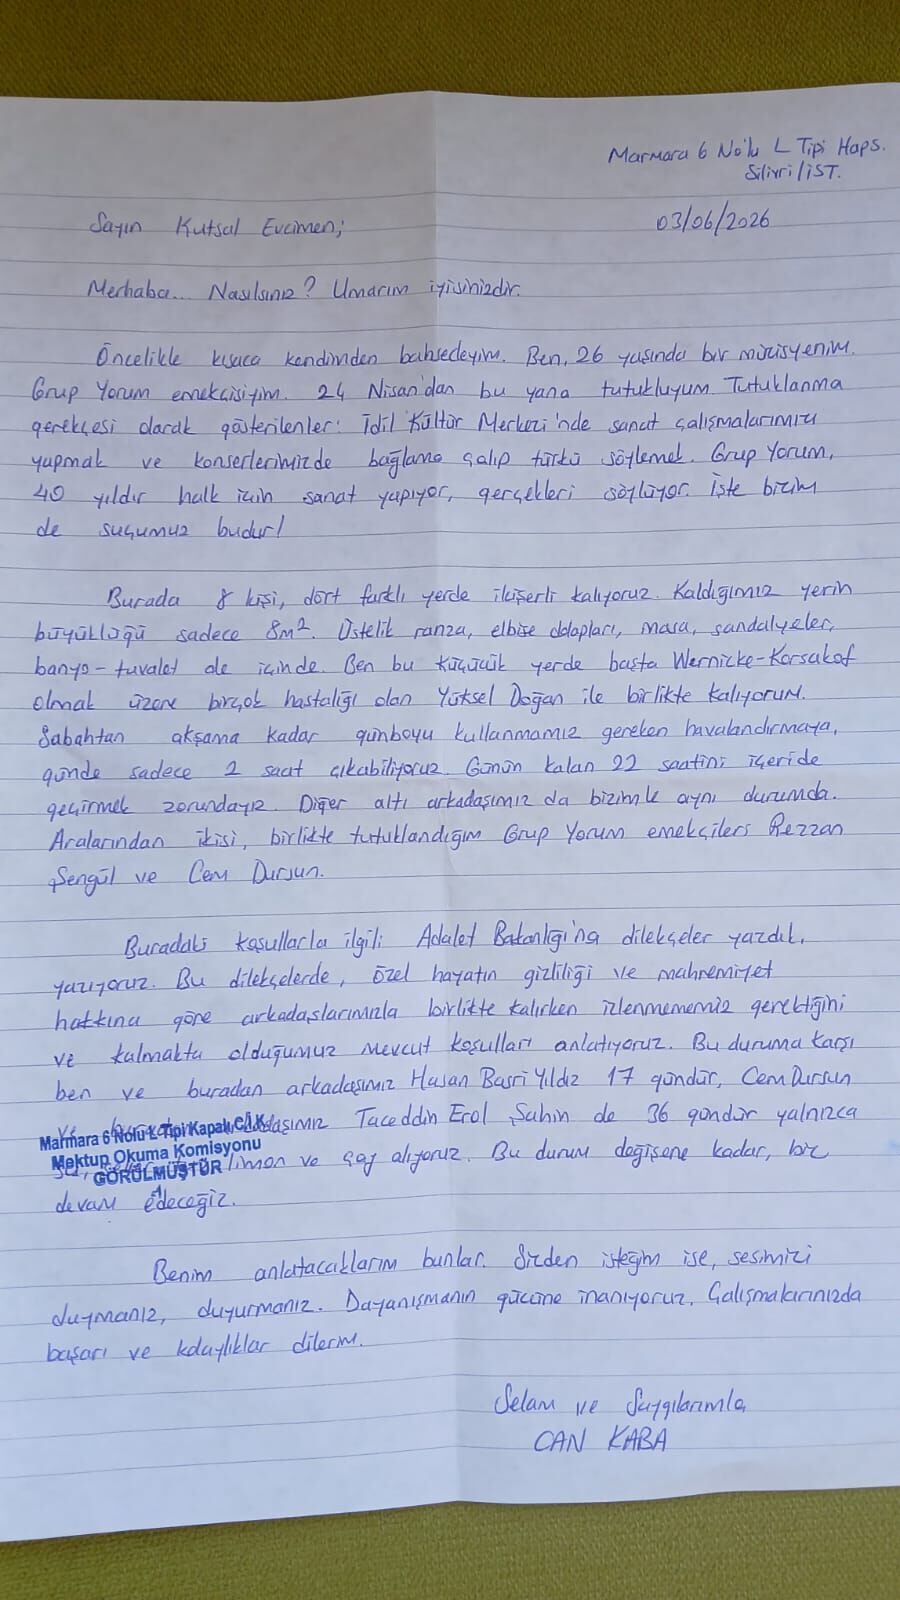 Marmara 6 No'lu L Tipi Haps.
Silivri/İST.
03/06/2026
Sayın Kutsal Evcimen;
Merhaba... Nasılsınız? Umarım iyisinizdir.
Öncelikle kısaca kendimden bahsedeyim. Ben, 26 yaşında bir müzisyenim.
Grup Yorum emekçisiyim. 24 Nisan'dan bu yana tutukluyum. Tutuklanma
gerekçesi olarak gösterilenler: İdil Kültür Merkezi'nde sanat çalışmalarımızı
yapmak ve konserlerimizde bağlama çalıp türkü söylemek. Grup Yorum,
40 yıldır halk için sanat yapıyor, gerçekleri söylüyor. İşte bizim
de suçumuz budur!
Burada 8 kişi, dört farklı yerde ikişerli kalıyoruz. Kaldığımız yerin
büyüklüğü sadece 8m². Üstelik ranza, elbise dolapları, masa, sandalyeler,
banyo-tuvalet de içinde. Ben bu küçücük yerde başta Wernicke-Korsakof
olmak üzere birçok hastalığı olan Yüksel Doğan ile birlikte kalıyorum.
Sabahtan akşama kadar günboyu kullanmamız gereken havalandırmaya,
günde sadece 2 saat çıkabiliyoruz. Günün kalan 22 saatini içeride
geçirmek zorundayız. Diğer altı arkadaşımız da bizimle aynı durumda.
Aralarından ikisi, birlikte tutuklandığım Grup Yorum emekçileri Rezzan
Şengül ve Cem Dursun.
Buradaki koşullarla ilgili Adalet Bakanlığı'na dilekçeler yazdık,
yazıyoruz. Bu dilekçelerde, özel hayatın gizliliği ve mahremiyet
hakkına göre arkadaşlarımızla birlikte kalırken izlenmememiz gerektiğini
ve kalmakta olduğumuz mevcut koşulları anlatıyoruz. Bu duruma karşı
ben ve buradan arkadaşımız Hasan Basri Yıldız 17 gündür, Cem Dursun
ve arkadaşımız Taceddin Erol Şahin de 36 gündür yalnızca
limon ve çay alıyoruz. Bu durum değişene kadar, biz
devam edeceğiz.
Marmara 6 Nolu L Tipi Kapalı C.İ.K
Mektup Okuma Komisyonu
GÖRÜLMÜŞTÜR
Benim anlatacaklarım bunlar. Sizden isteğim ise, sesimizi
duymanız, duyurmanız. Dayanışmanın gücüne inanıyoruz. Çalışmalarınızda
başarı ve kolaylıklar dilerim.
Selam ve Saygılarımla
CAN KABA